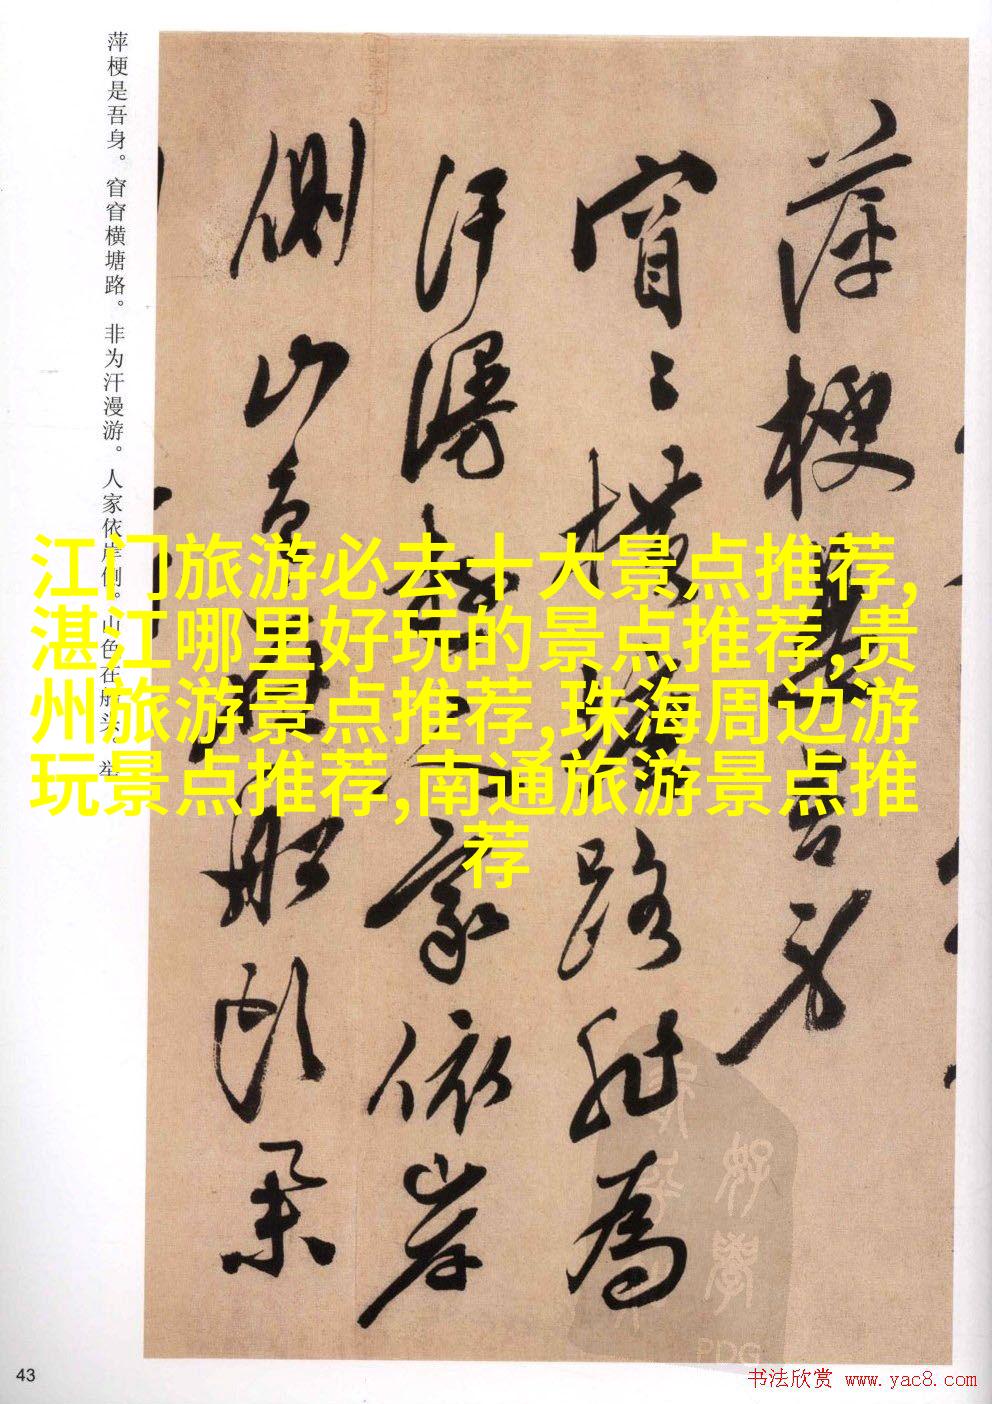 萍梗是吾身。窅窅横塘路。非为汗漫游。人家依岸侧。山色在船头。
萍梗是吾身
窅〻横塘路非為
汗漫游人家依岸
側山色在船頭
江门旅游必去十大景点推荐,
湛江哪里好玩的景点推荐,贵
州旅游景点推荐,珠海周边游
玩景点推荐,南通旅游景点推
荐
PDG
43
书法欣赏 www.yac8.com